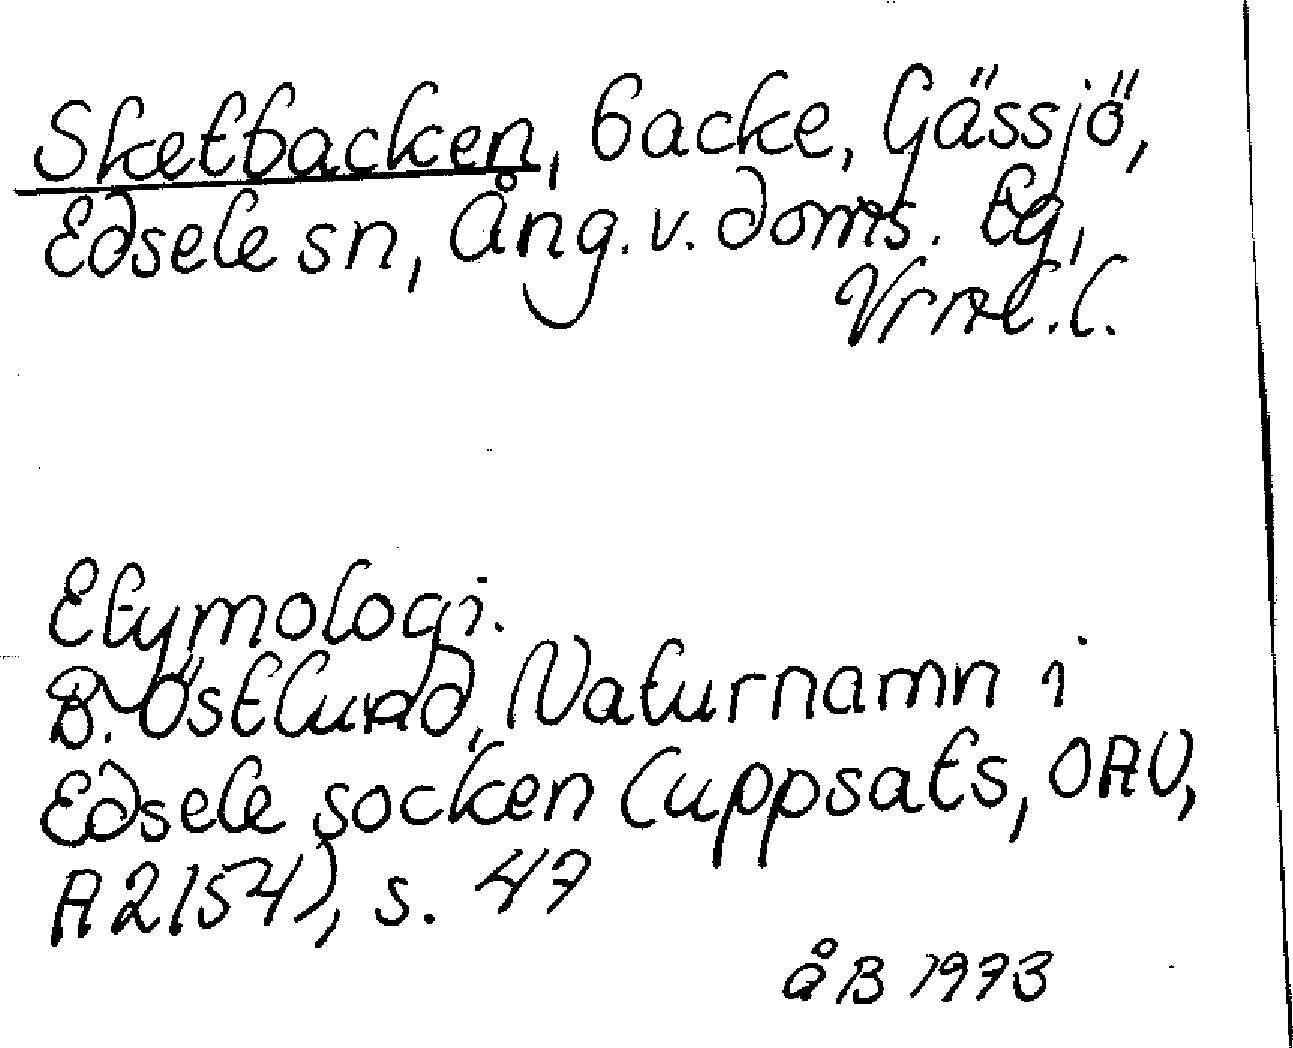 Sketbacken, backe, Gässjö,
Edsele sn, Ång. v. doms. tg,
Vrnl.l.
Etymologi.
B. Östlund, Naturnamn i
Edsele socken (uppsats, OAU,
A2154), s. 47
åB 1973